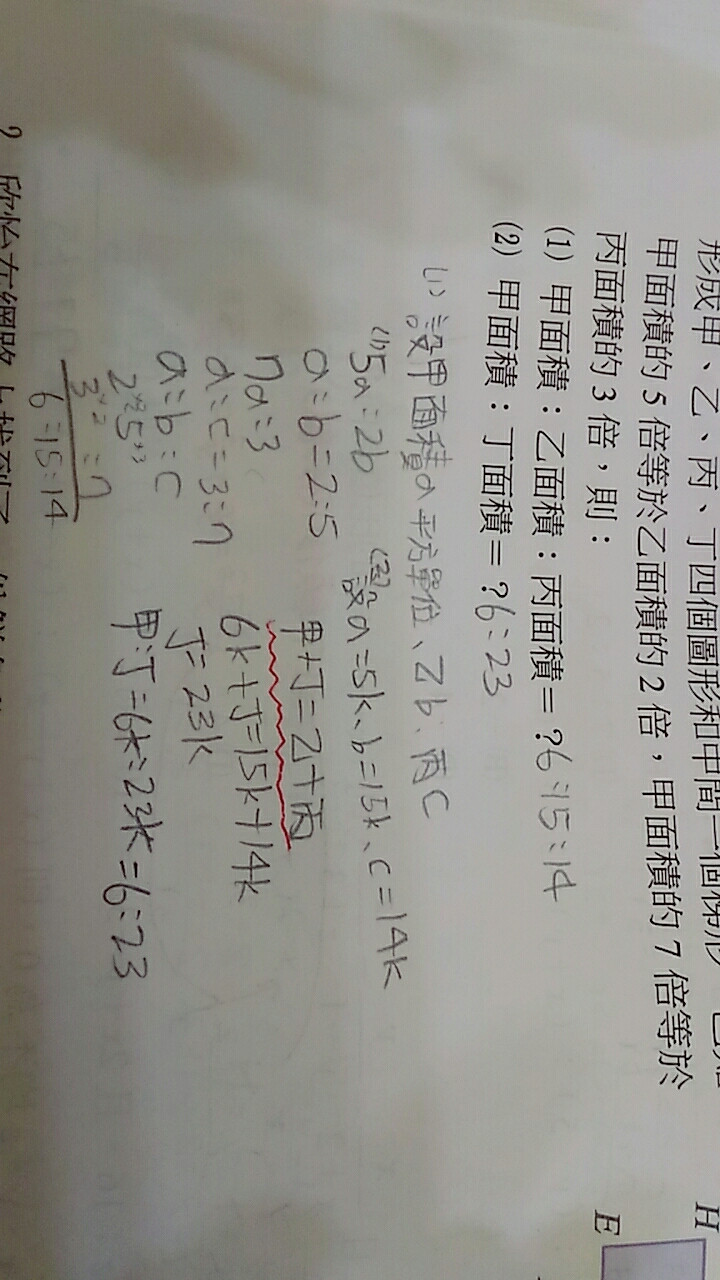 形成甲、乙、丙、丁四個圖形和中間一個梯形
甲面積的 5 倍等於乙面積的 2 倍，甲面積的 7 倍等於
丙面積的 3 倍，則：
(1) 甲面積：乙面積：丙面積＝？6:15:14
(2) 甲面積：丁面積＝？6:23
(1) 設甲面積a平方單位、乙b、丙c
(1)5a=2b
a:b=2:5
7a=3
a:c=3:7
a:b:c
2×3:5×3
3×2 :7
6:15:14
(2)設a=5k、b=15k、c=14k
甲+丁=乙+丙
6k+丁=15k+14k
丁=23k
甲:丁=6k:23k=6:23
H
E
2 欣怡在網路上找到了